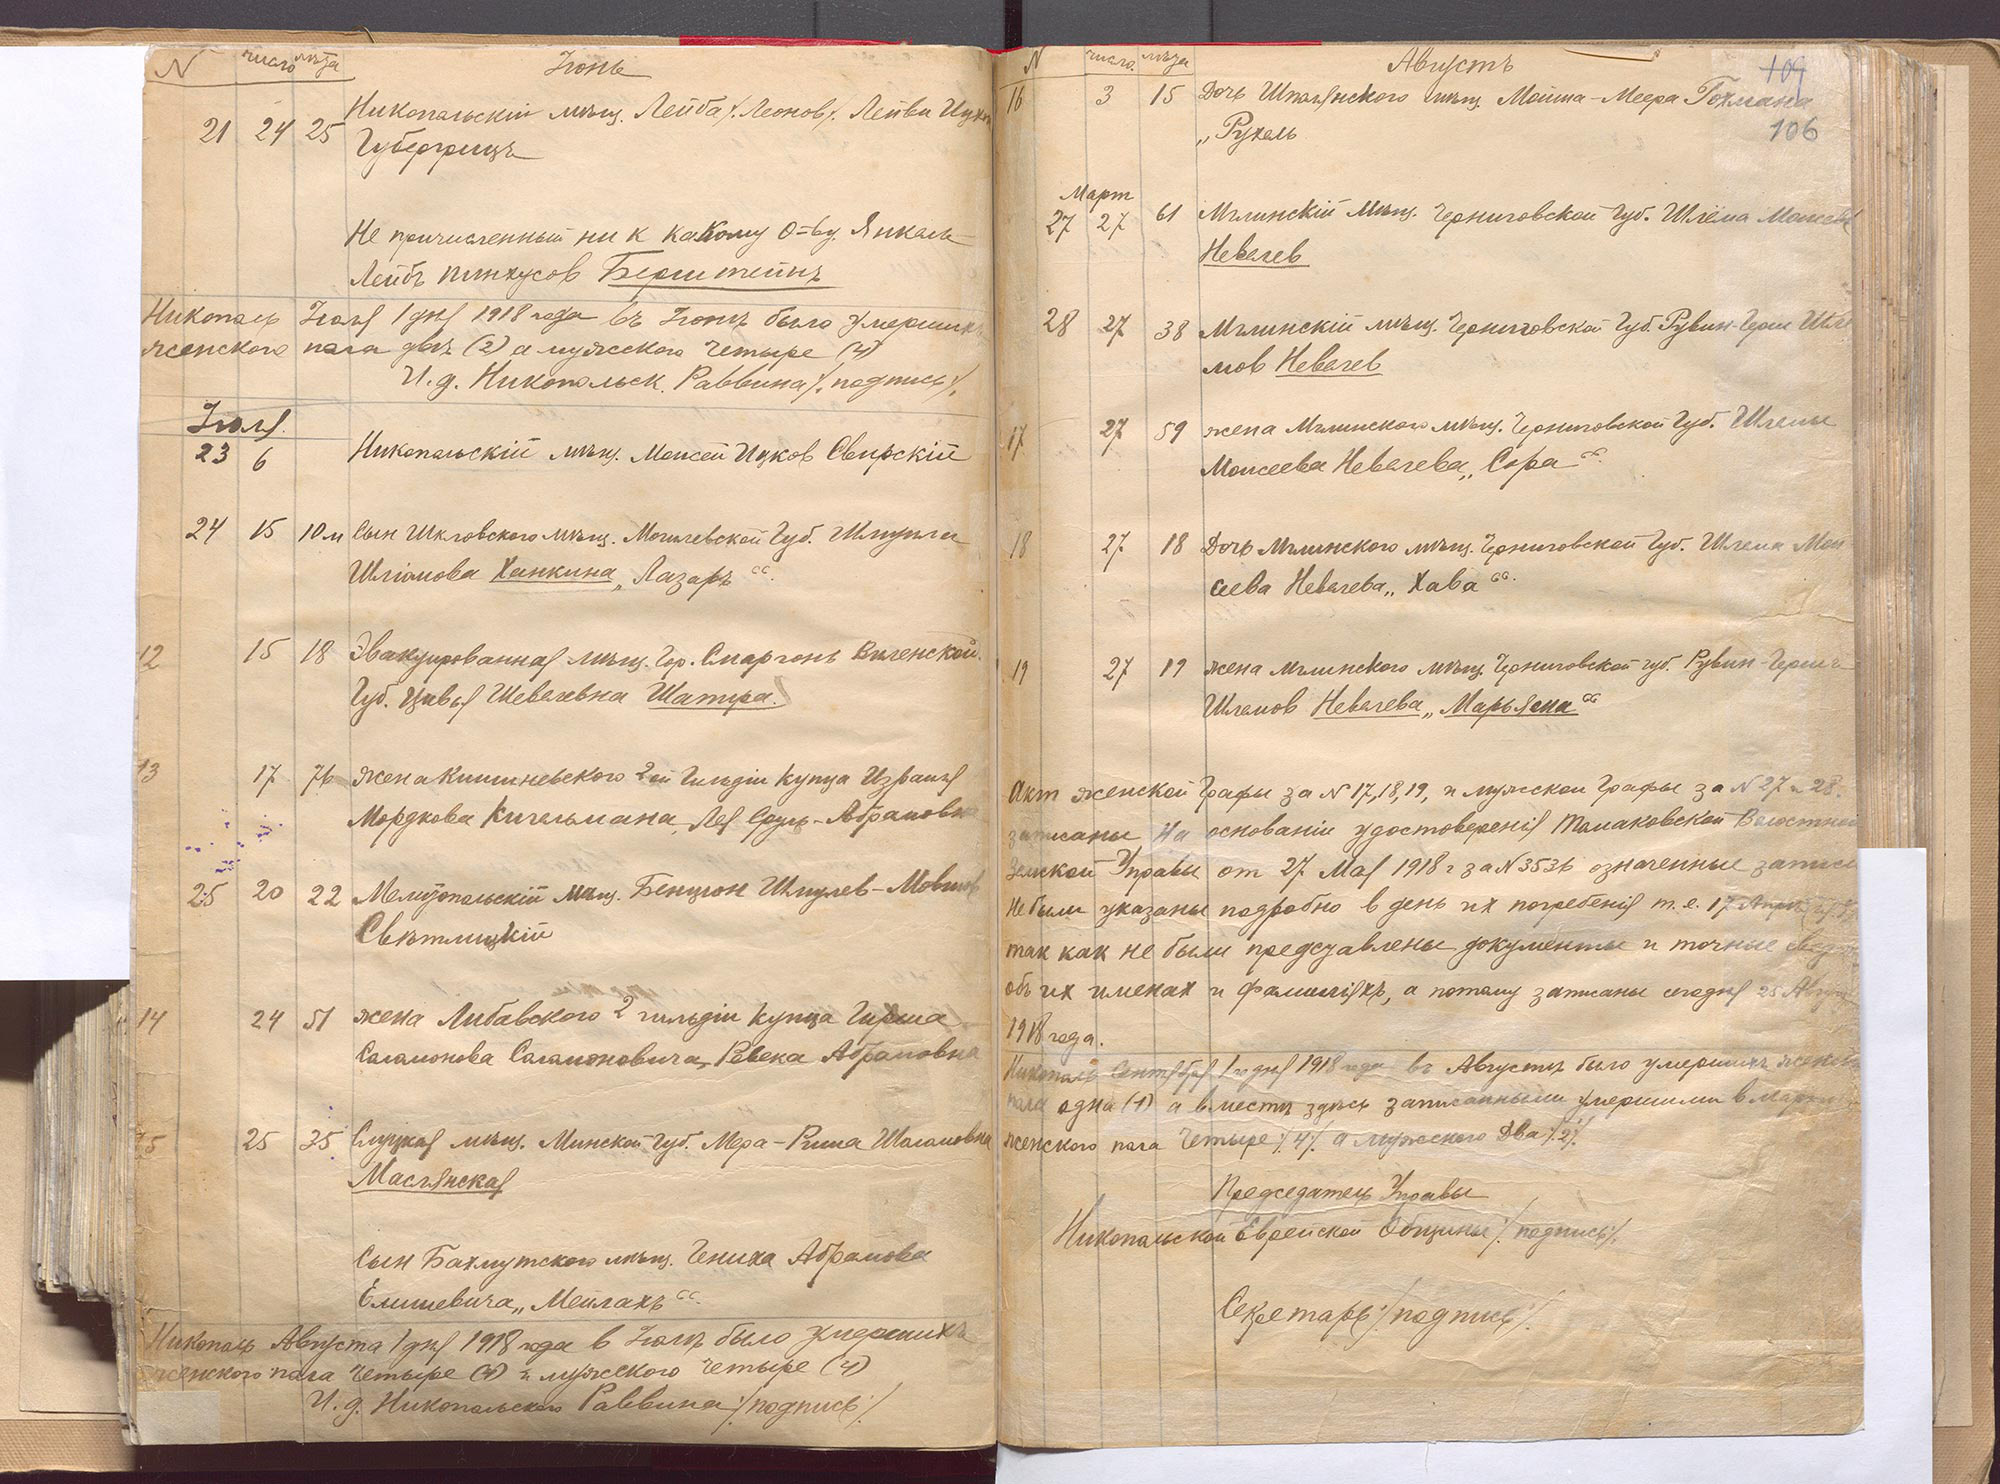 N число мѣс. Іюнь
21 24 25 Никопольскій мѣщ. Лейба /: Леонов :/ Лейви Ицков
Губергрицъ
Не причисленный ни к какому О-ву Янкель-
Лейбъ Пинхусов Берштейнъ
Никополь Іюля 1 дня 1918 года въ Іюнѣ было умершихъ
женского пола двѣ (2) а мужского четыре (4)
И.д. Никопольск. Раввина /: подпись :/
Іюля
23 6 Никопольскій мѣщ. Моисей Ицков Свирскій
24 15 10 м Сын Шкловского мѣщ. Могилевской Губ. Шмуила
Шліомова Ханкина „Лазаръ“.
12 15 18 Эвакуированная мѣщ. гор. Сморгонь Виленской
Губ. Цивья Шевелевна Шапира.
13 17 76 жена Кишиневского 2ой Гильдіи Купца Израиля
Мордкова Кигельмана, Лея Сруль-Абрамовна
25 20 22 Мелитопольскій мѣщ. Бенцион Шмулев-Мовшов
Свѣтлицкій
14 24 51 жена Либавского 2 гильдіи Купца Гирша
Саламонова Саламоновича, Ревека Абрамовна
15 25 35 Слуцкая мѣщ. Минской Губ. Мера-Риша Шоломовна
Маслянская
Сын Бахмутского мѣщ. Гениха Абрамова
Елишевича „Мейлахъ“.
Никополь Августа 1 дня 1918 года в Іюлѣ было умершихъ
женского пола четыре (4) и мужского четыре (4)
И.д. Никопольского Раввина /: подпись :/
N число мѣс. Августъ
104
106
16 3 15 Дочь Шполянского мѣщ. Мойша-Меера Гохмана
„Рухель
Март
27 27 61 Мглинскій мѣщ. Черниговской Губ. Шлёма Моисеев
Невелев
28 27 38 Мглинскій мѣщ. Черниговской Губ. Рувин-Герш Шле-
мов Невелев
17 27 59 жена Мглинского мѣщ. Черниговской Губ. Шлемы
Моисеева Невелева „Сора“.
18 27 18 Дочь Мглинского мѣщ. Черниговской Губ. Шлема Мои-
сеева Невелева „Хава“.
19 27 19 жена Мглинского мѣщ. Черниговской губ. Рувин-Герша
Шлемов Невелева „Марьясна“
Акт женской Графы за N 17, 18, 19, и мужской Графы за N 27 и 28.
записаны на основаніи удостоверенія Томаковской Волостной
Земской Управы от 27 Мая 1918 г за N 3536 означенные записи
не были указаны подробно в день их погребенія т.е. 17 Апрѣля
так как не были представлены документы и точные свед
объ их именах и фамиліяхъ, а потому записаны сегодня 25 Августа
1918 года.
Никополь Сентября 1го дня 1918 года въ Августѣ было умершихъ женского
пола одна (1) а вместѣ здѣсь записанными умершими в Мартѣ
женского пола четыре /: 4 :/ а мужского Два /: 2 :/
Председатель Управы
Никопольской Еврейской Общины /: подпись :/
Секретарь /: подпись :/